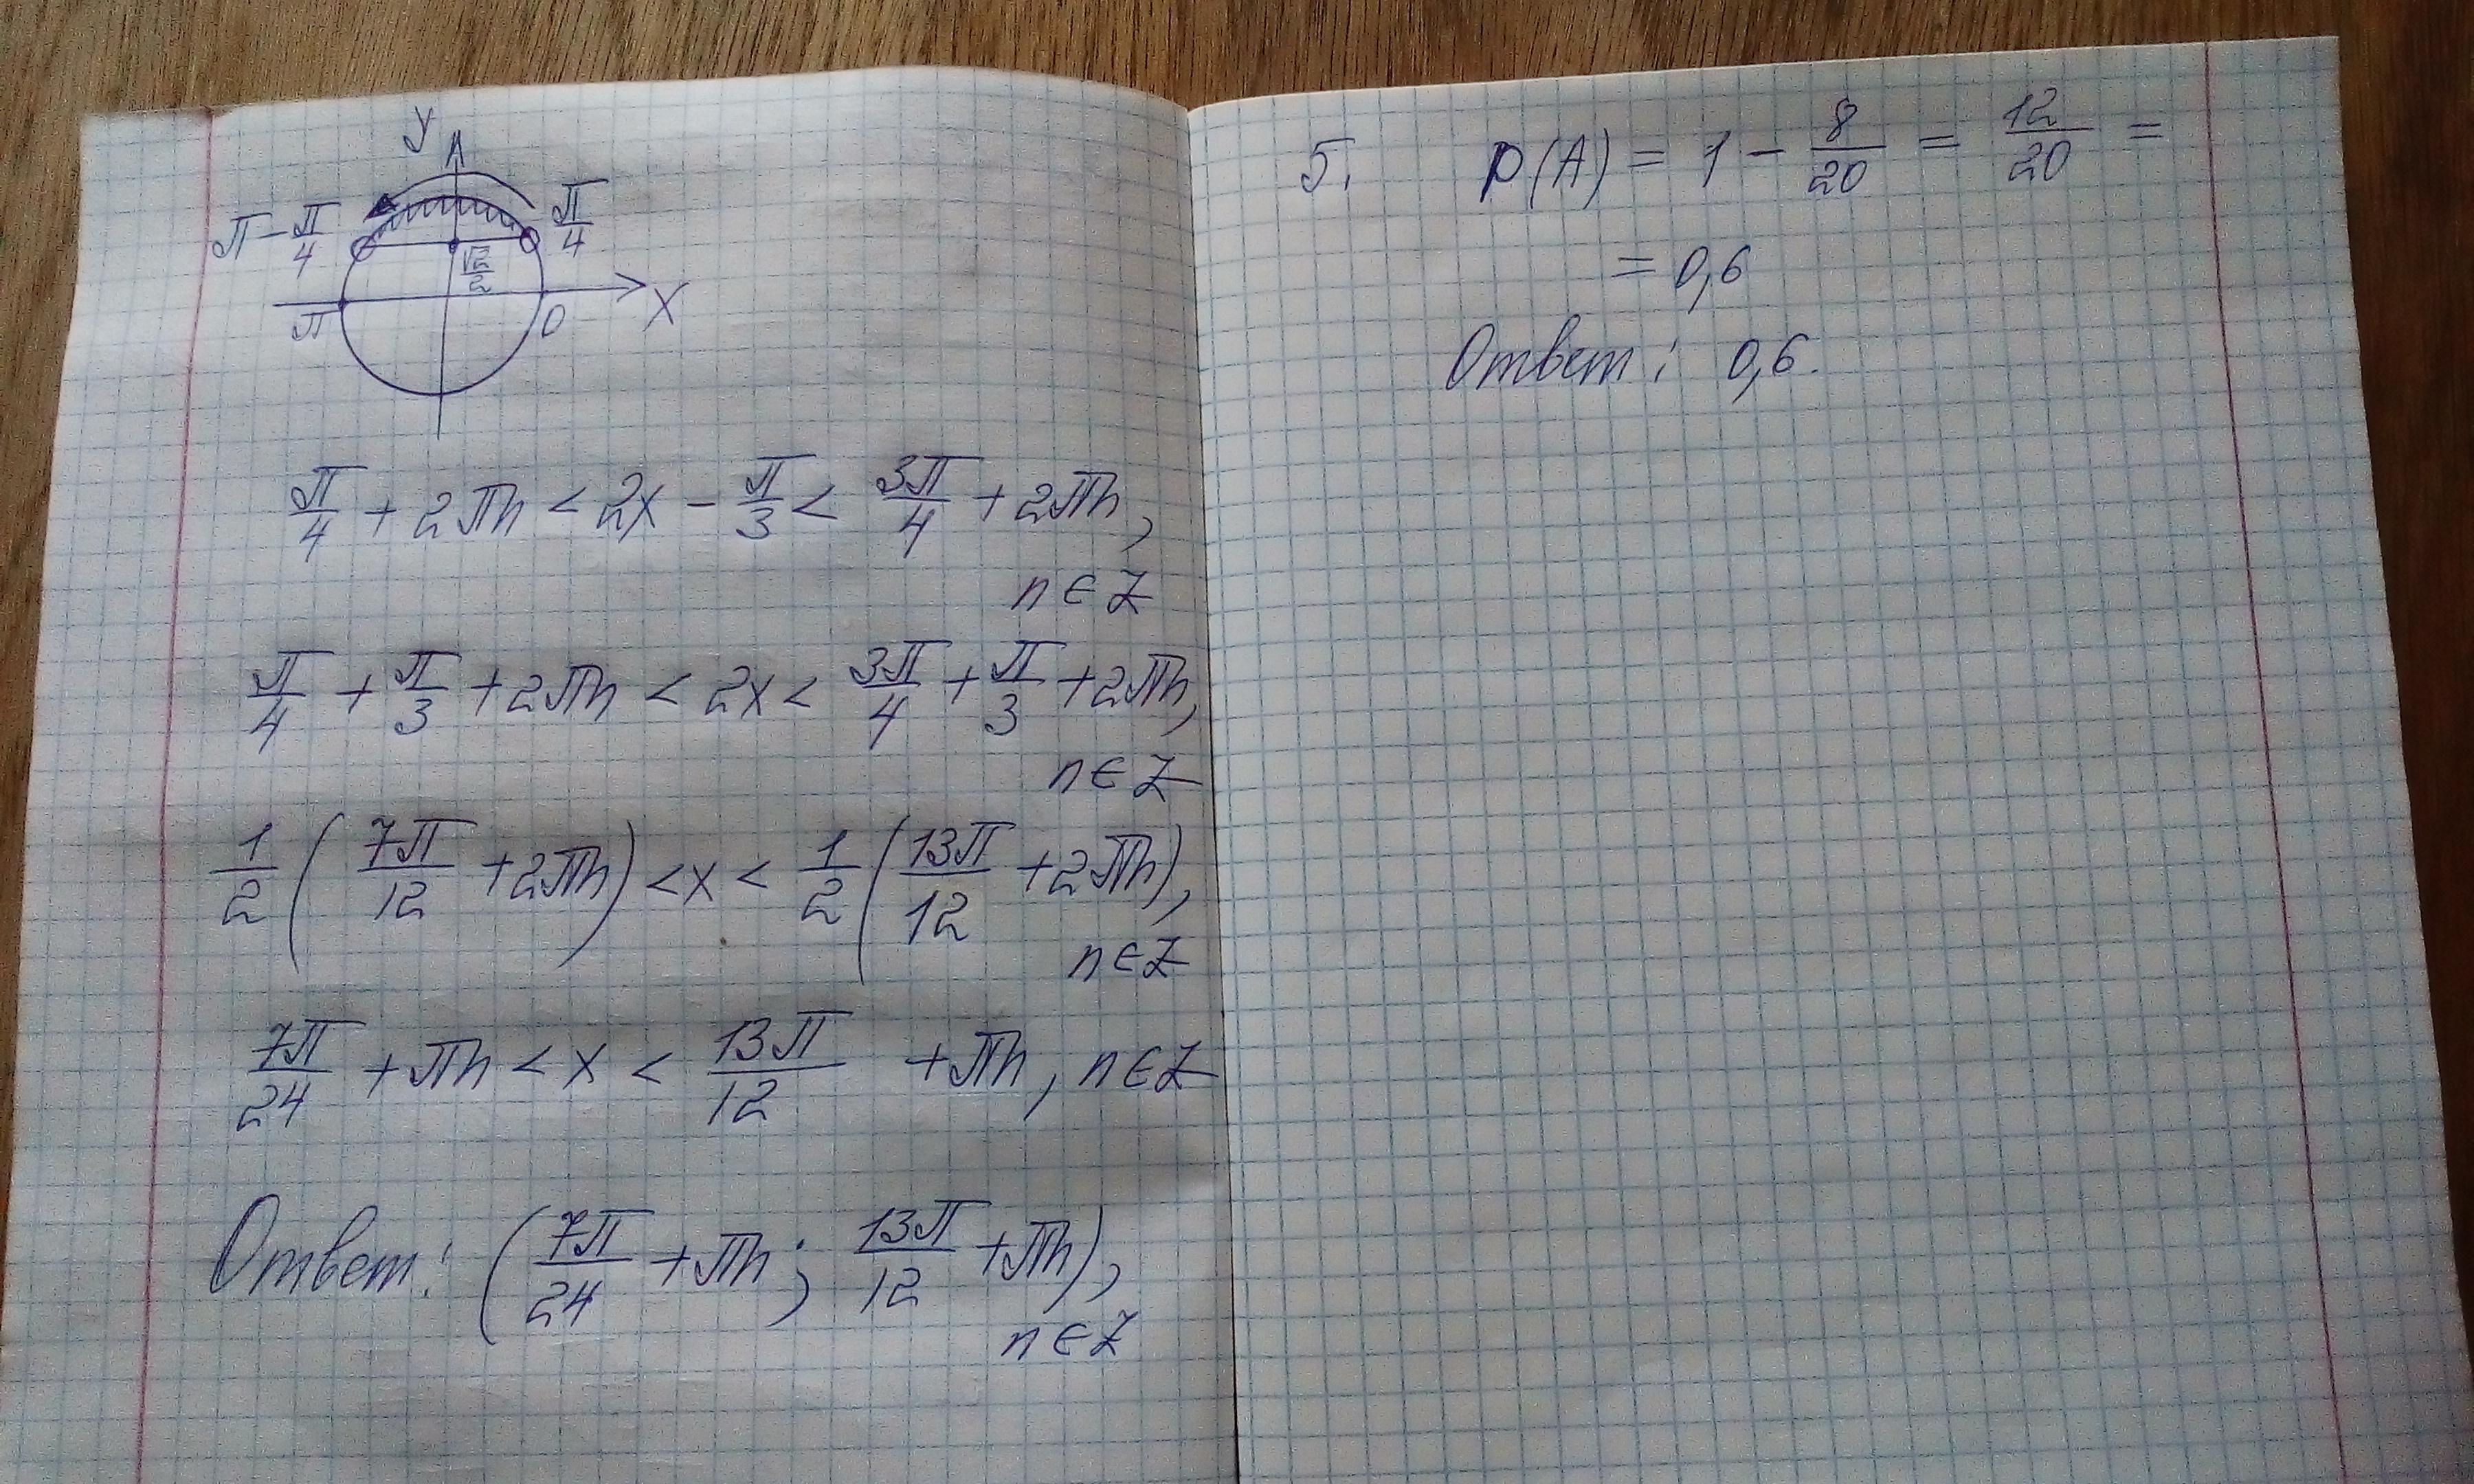 y
π - π/4
π/4
√2/2
π
0
x
π/4 + 2πn < 2x - π/3 < 3π/4 + 2πn,
n ∈ Z
π/4 + π/3 + 2πn < 2x < 3π/4 + π/3 + 2πn,
n ∈ Z
1/2 (7π/12 + 2πn) < x < 1/2 (13π/12 + 2πn),
n ∈ Z
7π/24 + πn < x < 13π/12 + πn, n ∈ Z
Ответ: (7π/24 + πn; 13π/12 + πn),
n ∈ Z
5. p(A) = 1 - 8/20 = 12/20 =
= 0,6
Ответ: 0,6.